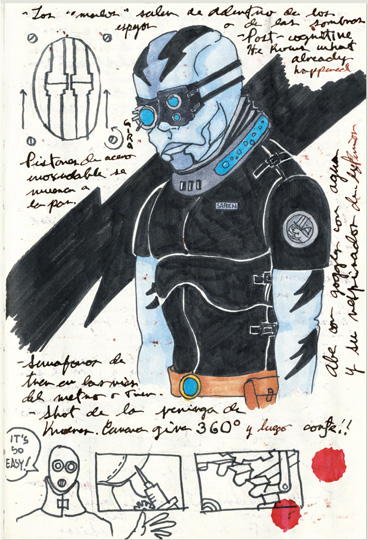 - Los "malos" salen de adentro de los
espejos o de las sombras
- Post-cognitive
He knows what
already
happened
Gira
Pistones de acero
inoxidable se
mueven a
la par.
SAPIEN
Abe con goggles con agua
y su respirador de
- Semáforos de
tren en las vías
del metro o tren.
- Shot de la jeringa de
Kroenen. Camara gira 360° y luego corte!!
IT'S
SO
EASY!